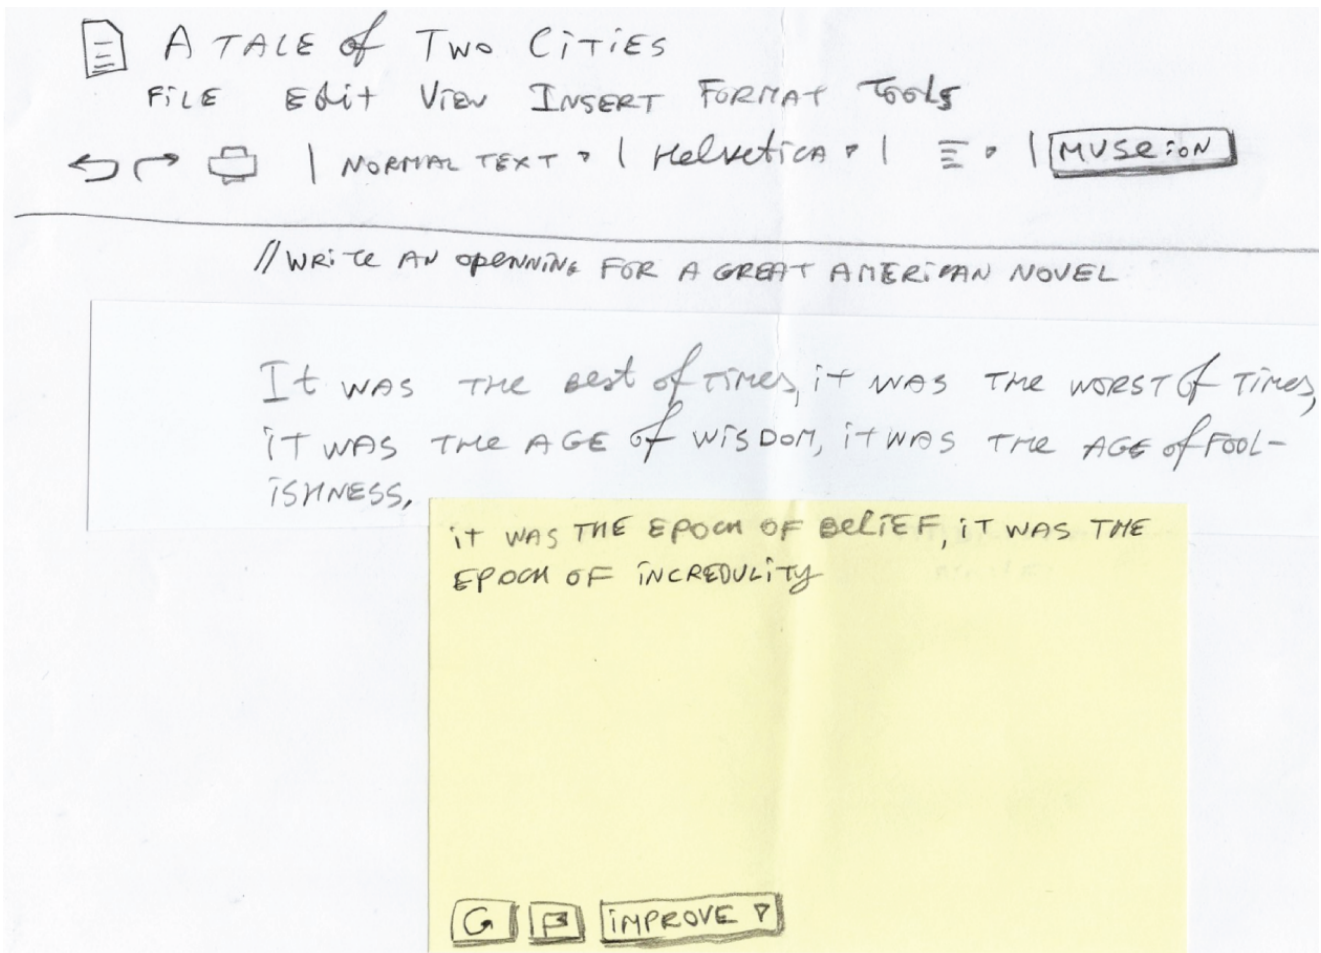 A TALE of Two CiTiES
FiLE Edit View INSERT FORMAT Tools
NORMAL TEXT Helvetica MUSEiON
//WRiTE AN OPENNiNG FOR A GREAT AMERiCAN NOVEL
It WAS THE BEST of TiMES, iT WAS THE WORST of TiMES,
iT WAS THE AGE of WiSDOM, iT WAS THE AGE of FOOL-
iSHNESS,
iT WAS THE EPOCH OF BELiEF, iT WAS THE
EPOCH OF iNCREDULiTY
G iMPROVE